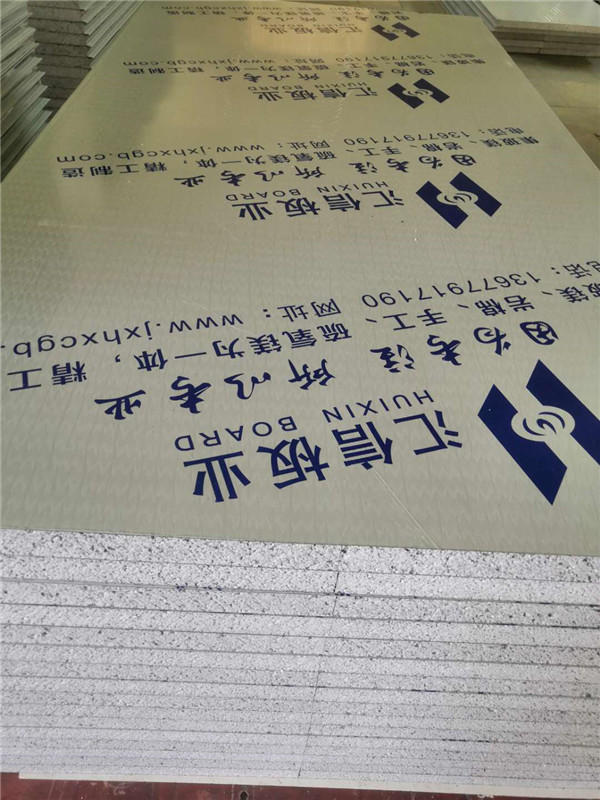 汇信板业
HUIXIN BOARD
因为专注 所以专业
玻镁、岩棉、手工、硫氧镁为一体，精工
电话：13677917190 网址：www.jxhxcgb.
汇信板业
HUIXIN BOARD
因为专注 所以专业
集玻镁、岩棉、手工、硫氧镁为一体，精工制造
电话：13677917190 网址：www.jxhxcgb.com
汇信板业
HUIXIN BOARD
因为专注 所以专业
集玻镁、岩棉、手工、硫氧镁为一体，精工制造
电话：13677917190 网址：www.jxhxcgb.com
汇信板业